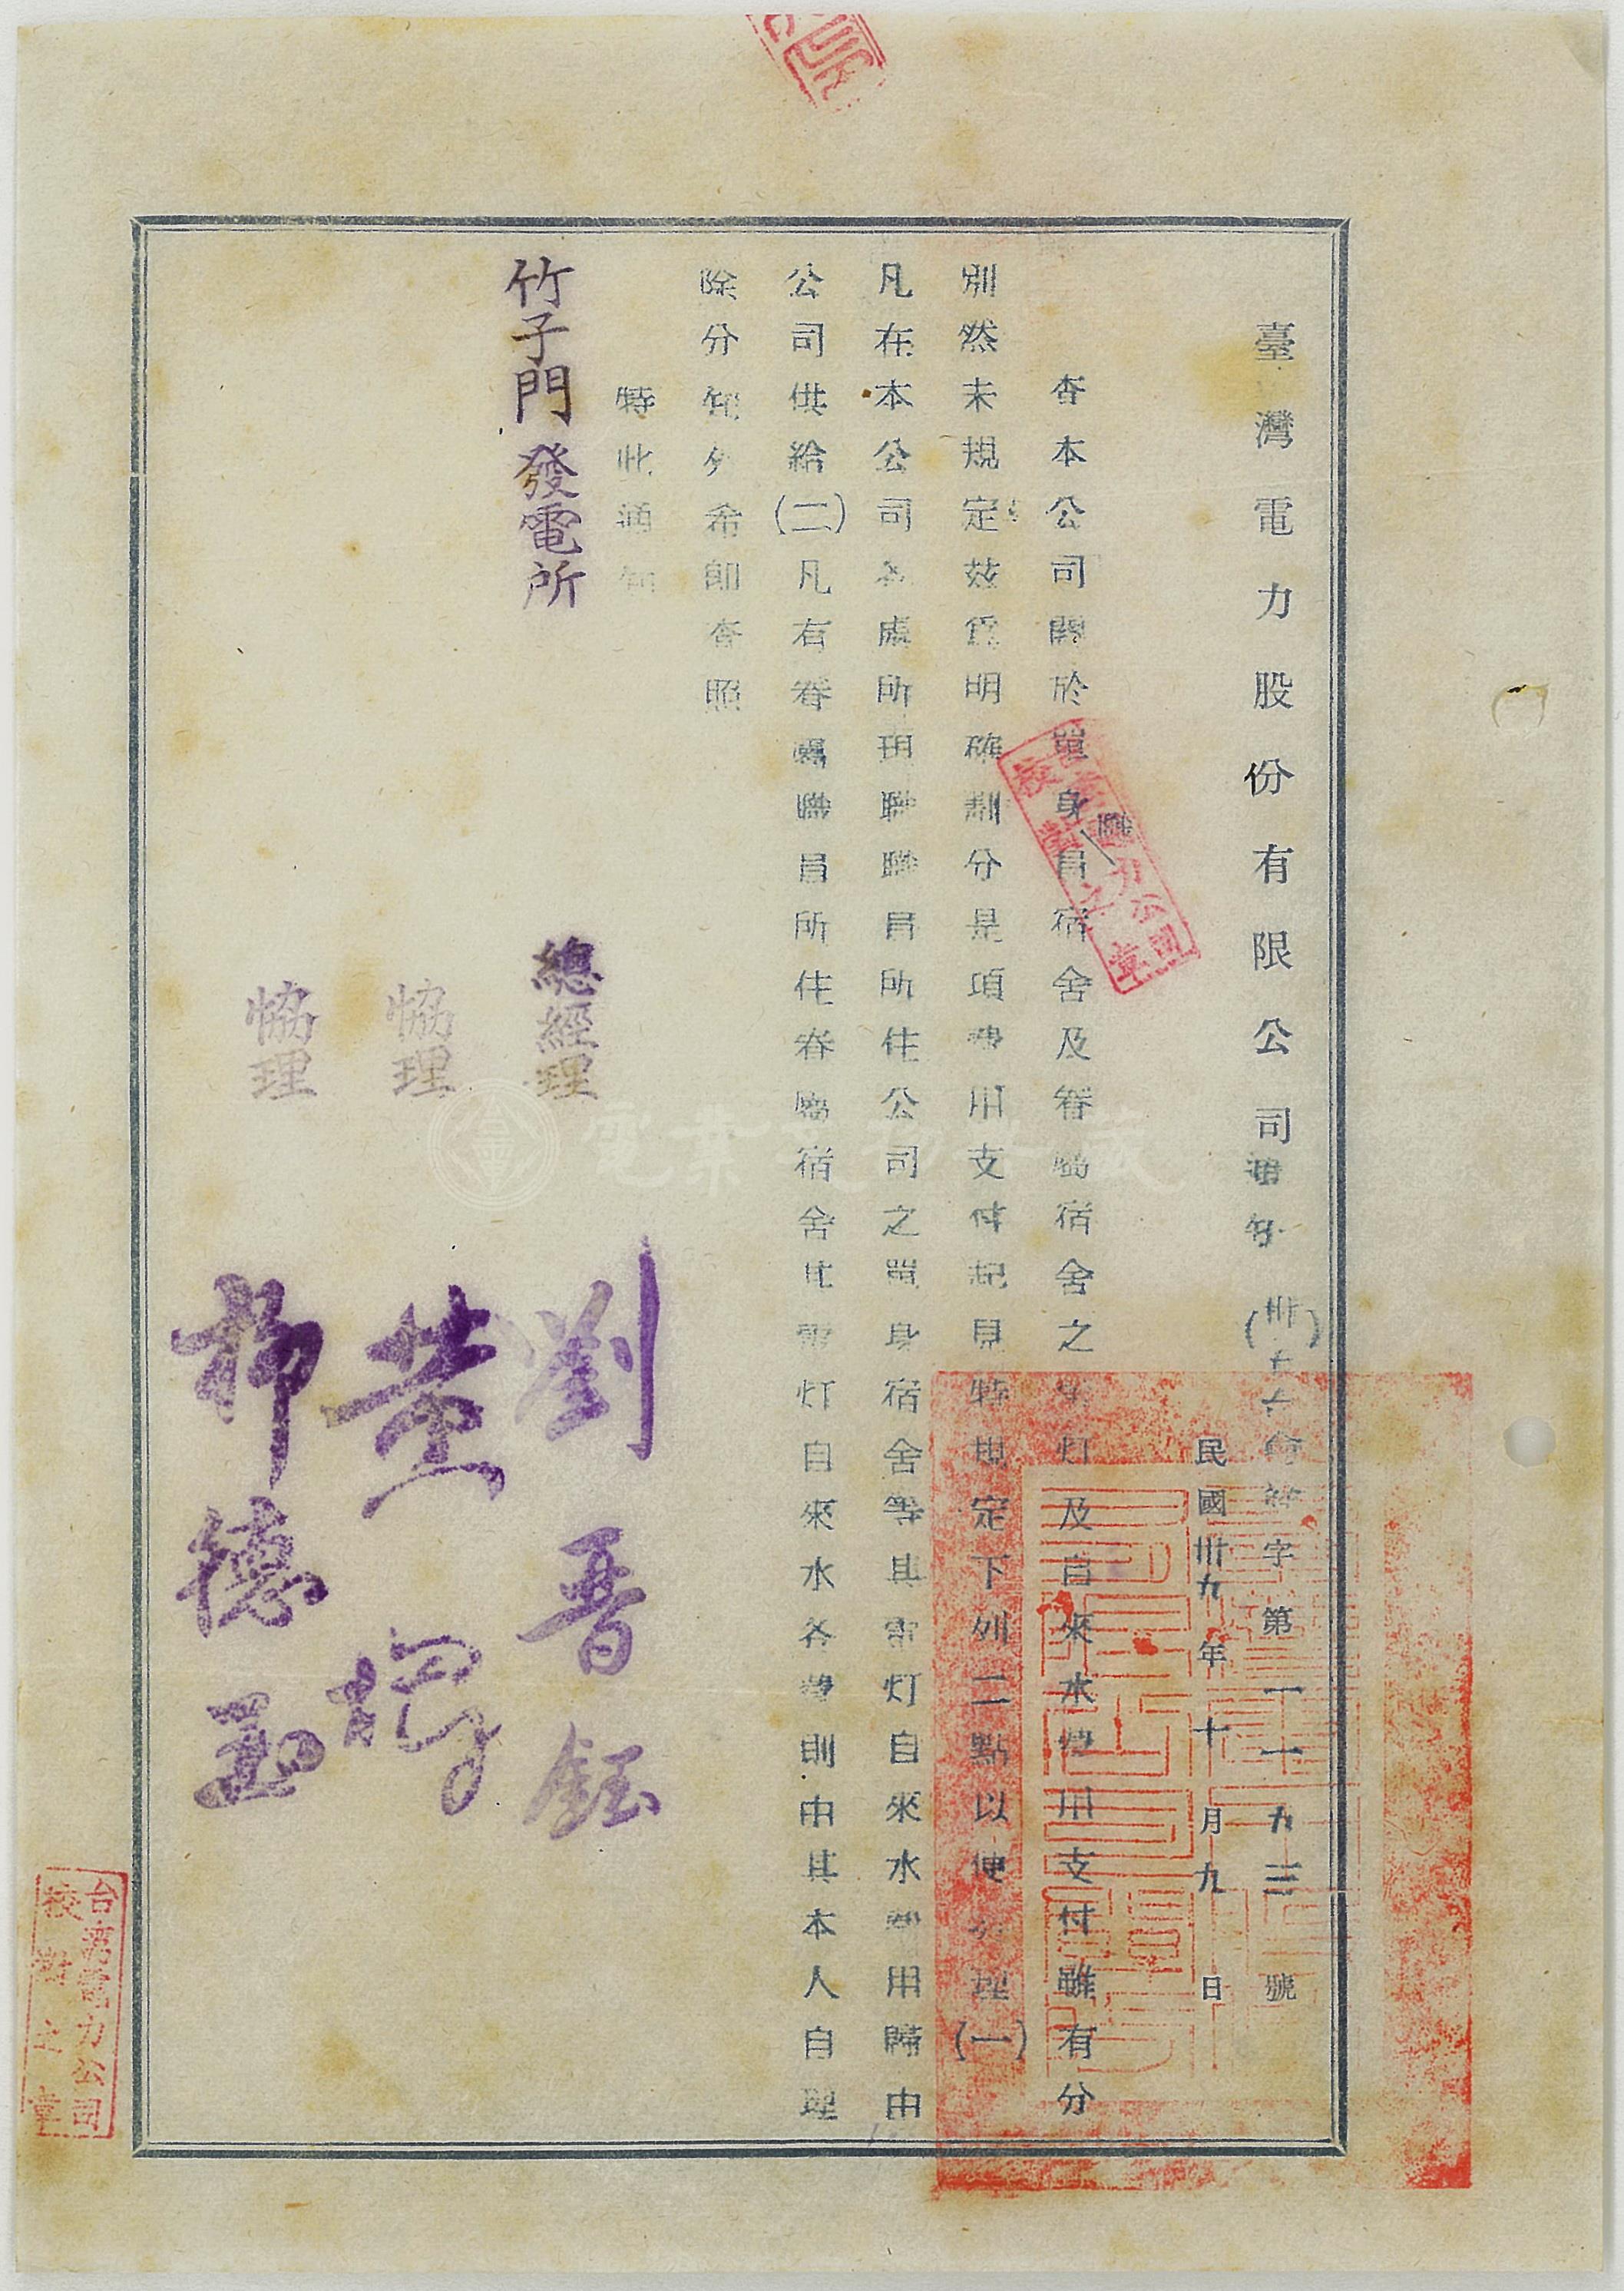 臺灣電力股份有限公司通知
字第一一九三號
民國卅九年十月九日
查本公司關於單身職員宿舍及眷屬宿舍之電灯及自來水費用支付雖有分
別然未規定茲爲明確劃分是項費用支付起見特規定下列二點以便辦理(一)
凡在本公司各處所現職職員所住公司之單身宿舍等其電灯自來水費用歸由
公司供給(二)凡有眷屬職員所住眷屬宿舍其電灯自來水各費則由其本人自理
除分知外希即查照
特此通知
竹子門發電所
總經理 劉晋鈺
協理 黄煇
協理 柳德玉
台灣電力公司
校對之章